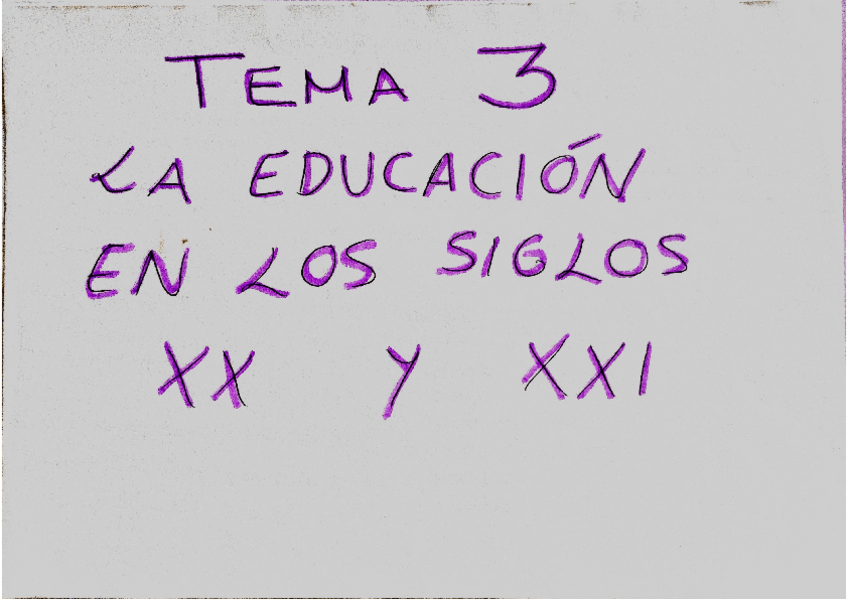 TEMA 3
LA EDUCACIÓN
EN LOS SIGLOS
XX Y XXI